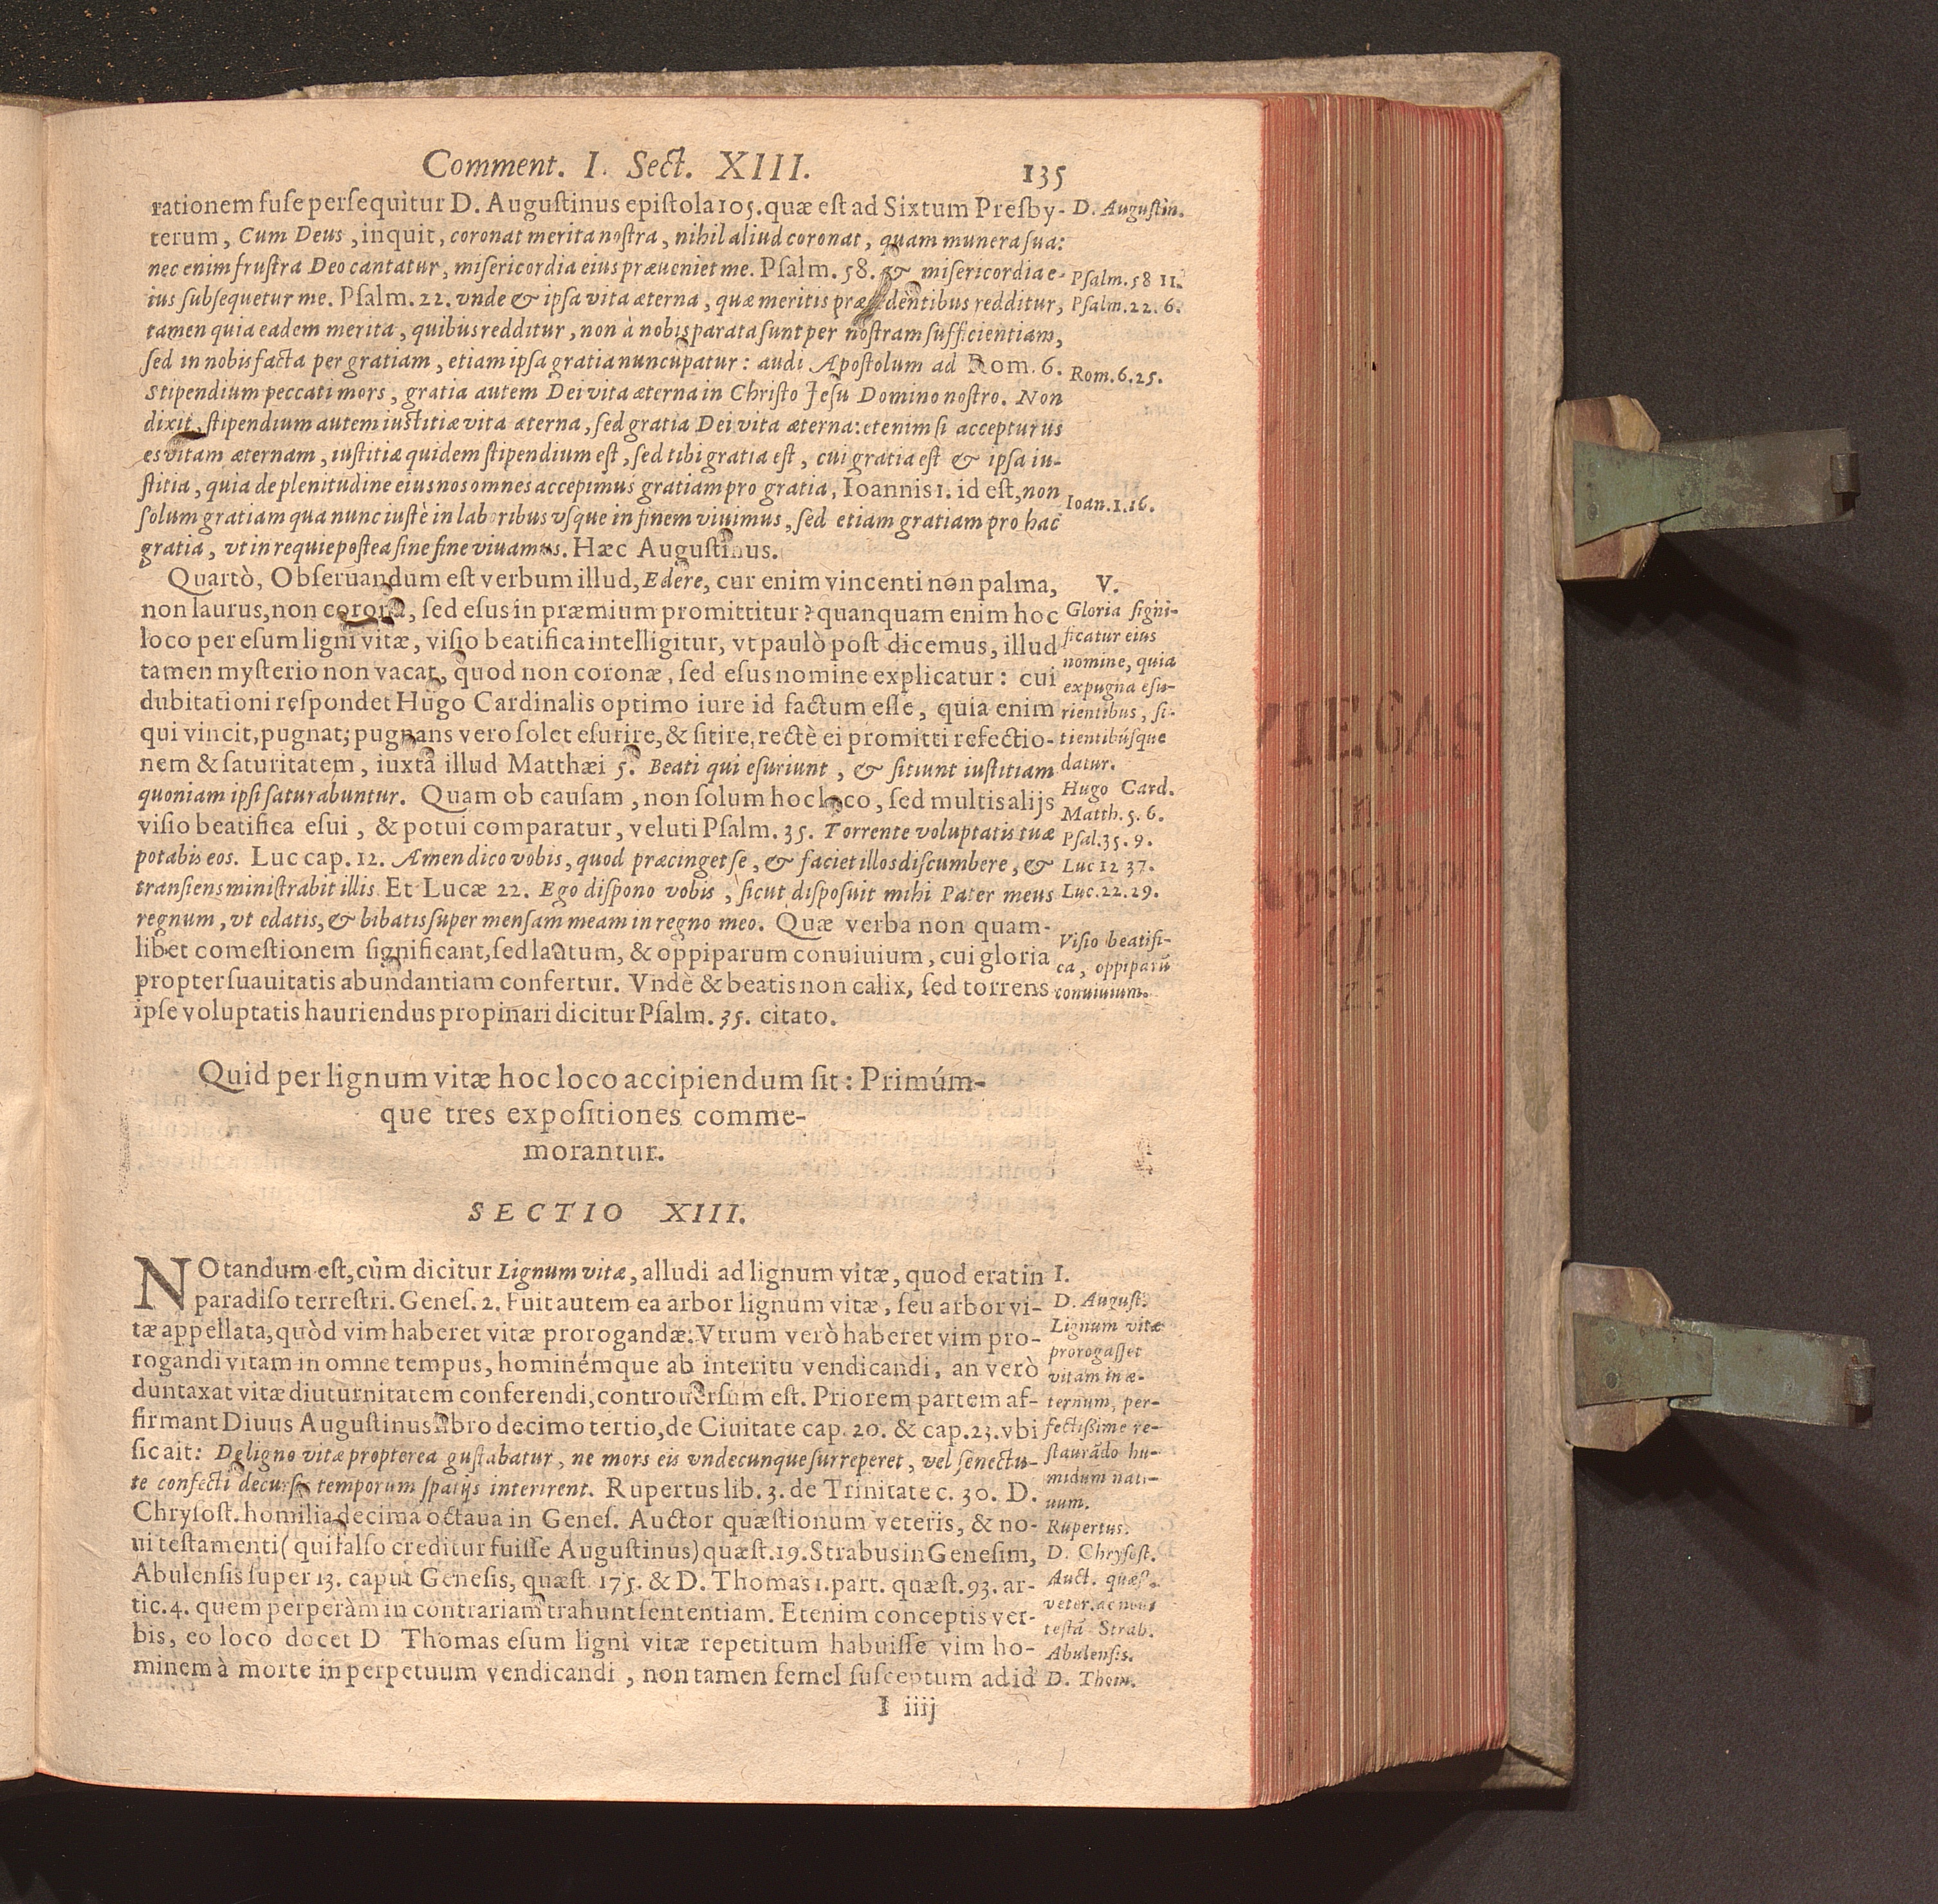 Comment. I. Sect. XIII. 135
rationem fuse persequitur D. Augustinus epistola 105. quæ est ad Sixtum Presby-
terum, Cum Deus, inquit, coronat merita nostra, nihil aliud coronat, quam munera sua:
nec enim frustra Deo cantatur, misericordia eius præueniet me. Psalm. 58. & misericordia e-
ius subsequetur me. Psalm. 22. vnde & ipsa vita æterna, quæ meritis præcedentibus redditur,
tamen quia eadem merita, quibus redditur, non à nobis parata sunt per nostram sufficientiam,
sed in nobis facta per gratiam, etiam ipsa gratia nuncupatur: audi Apostolum ad Rom. 6.
Stipendium peccati mors, gratia autem Dei vita æterna in Christo Jesu Domino nostro. Non
dixit, stipendium autem iustitiæ vita æterna, sed gratia Dei vita æterna: etenim si accepturus
es vitam æternam, iustitiæ quidem stipendium est, sed tibi gratia est, cui gratia est & ipsa iu-
stitia, quia de plenitudine eius nos omnes accepimus gratiam pro gratia, Ioannis 1. id est, non
solum gratiam qua nunc iustè in laboribus vsque in finem viuimus, sed etiam gratiam pro hac
gratia, vt in requie postea sine fine viuamus. Hæc Augustinus.
D. Augustin.
Psalm. 58 11.
Psalm. 22. 6.
Rom. 6. 25.
Ioan. 1. 16.
Quartò, Obseruandum est verbum illud, Edere, cur enim vincenti non palma,
non laurus, non corona, sed esus in præmium promittitur? quanquam enim hoc
loco per esum ligni vitæ, visio beatifica intelligitur, vt paulò post dicemus, illud
tamen mysterio non vacat, quod non coronæ, sed esus nomine explicatur: cui
dubitationi respondet Hugo Cardinalis optimo iure id factum esse, quia enim
qui vincit, pugnat; pugnans vero solet esurire, & sitire, rectè ei promitti refectio-
nem & saturitatem, iuxta illud Matthæi 5. Beati qui esuriunt, & sitiunt iustitiam
quoniam ipsi saturabuntur. Quam ob causam, non solum hoc loco, sed multis alijs
visio beatifica esui, & potui comparatur, veluti Psalm. 35. Torrente voluptatis tuæ
potabis eos. Luc cap. 12. Amen dico vobis, quod præcinget se, & faciet illos discumbere, &
transiens ministrabit illis. Et Lucæ 22. Ego dispono vobis, sicut disposuit mihi Pater meus
regnum, vt edatis, & bibatis super mensam meam in regno meo. Quæ verba non quam-
libet comestionem significant, sed lautum, & oppiparum conuiuium, cui gloria
propter suauitatis abundantiam confertur. Vndè & beatis non calix, sed torrens
ipse voluptatis hauriendus propinari dicitur Psalm. 35. citato.
V.
Gloria signi-
ficatur eius
nomine, quia
expugna esu-
rientibus, si-
tientibúsque
datur.
Hugo Card.
Matth. 5. 6.
Psal. 35. 9.
Luc 12 37.
Luc. 22. 29.
Visio beatifi-
ca, oppiparū
conuiuium.
Quid per lignum vitæ hoc loco accipiendum sit: Primúm-
que tres expositiones comme-
morantur.
SECTIO XIII.
NOtandum est, cùm dicitur Lignum vitæ, alludi ad lignum vitæ, quod erat in
paradiso terrestri. Genes. 2. Fuit autem ea arbor lignum vitæ, seu arbor vi-
tæ appellata, quòd vim haberet vitæ prorogandæ. Vtrum verò haberet vim pro-
rogandi vitam in omne tempus, hominémque ab interitu vendicandi, an verò
duntaxat vitæ diuturnitatem conferendi, controuersum est. Priorem partem af-
firmant Diuus Augustinus libro decimo tertio, de Ciuitate cap. 20. & cap. 23. vbi
sic ait: De ligno vitæ propterea gustabatur, ne mors eis vndecunque surreperet, vel senectu-
te confecti decursis temporum spatijs interirent. Rupertus lib. 3. de Trinitate c. 30. D.
Chrysost. homilia decima octaua in Genes. Auctor quæstionum veteris, & no-
ui testamenti (qui falso creditur fuisse Augustinus) quæst. 19. Strabus in Genesim,
Abulensis super 13. caput Genesis, quæst. 175. & D. Thomas 1. part. quæst. 93. ar-
tic. 4. quem perperàm in contrariam trahunt sententiam. Etenim conceptis ver-
bis, eo loco docet D Thomas esum ligni vitæ repetitum habuisse vim ho-
minem à morte in perpetuum vendicandi, non tamen semel susceptum ad id
I.
D. August.
Lignum vitæ
prorogasset
vitam in æ-
ternum, per-
fectissime re-
staurādo hu-
midum nati-
uum.
Rupertus.
D. Chrysost.
Auct. quæst.
veter. ac noui
testā Strab.
Abulensis.
D. Thom.
I iiij
VIEGAS
IN
Apocalyp